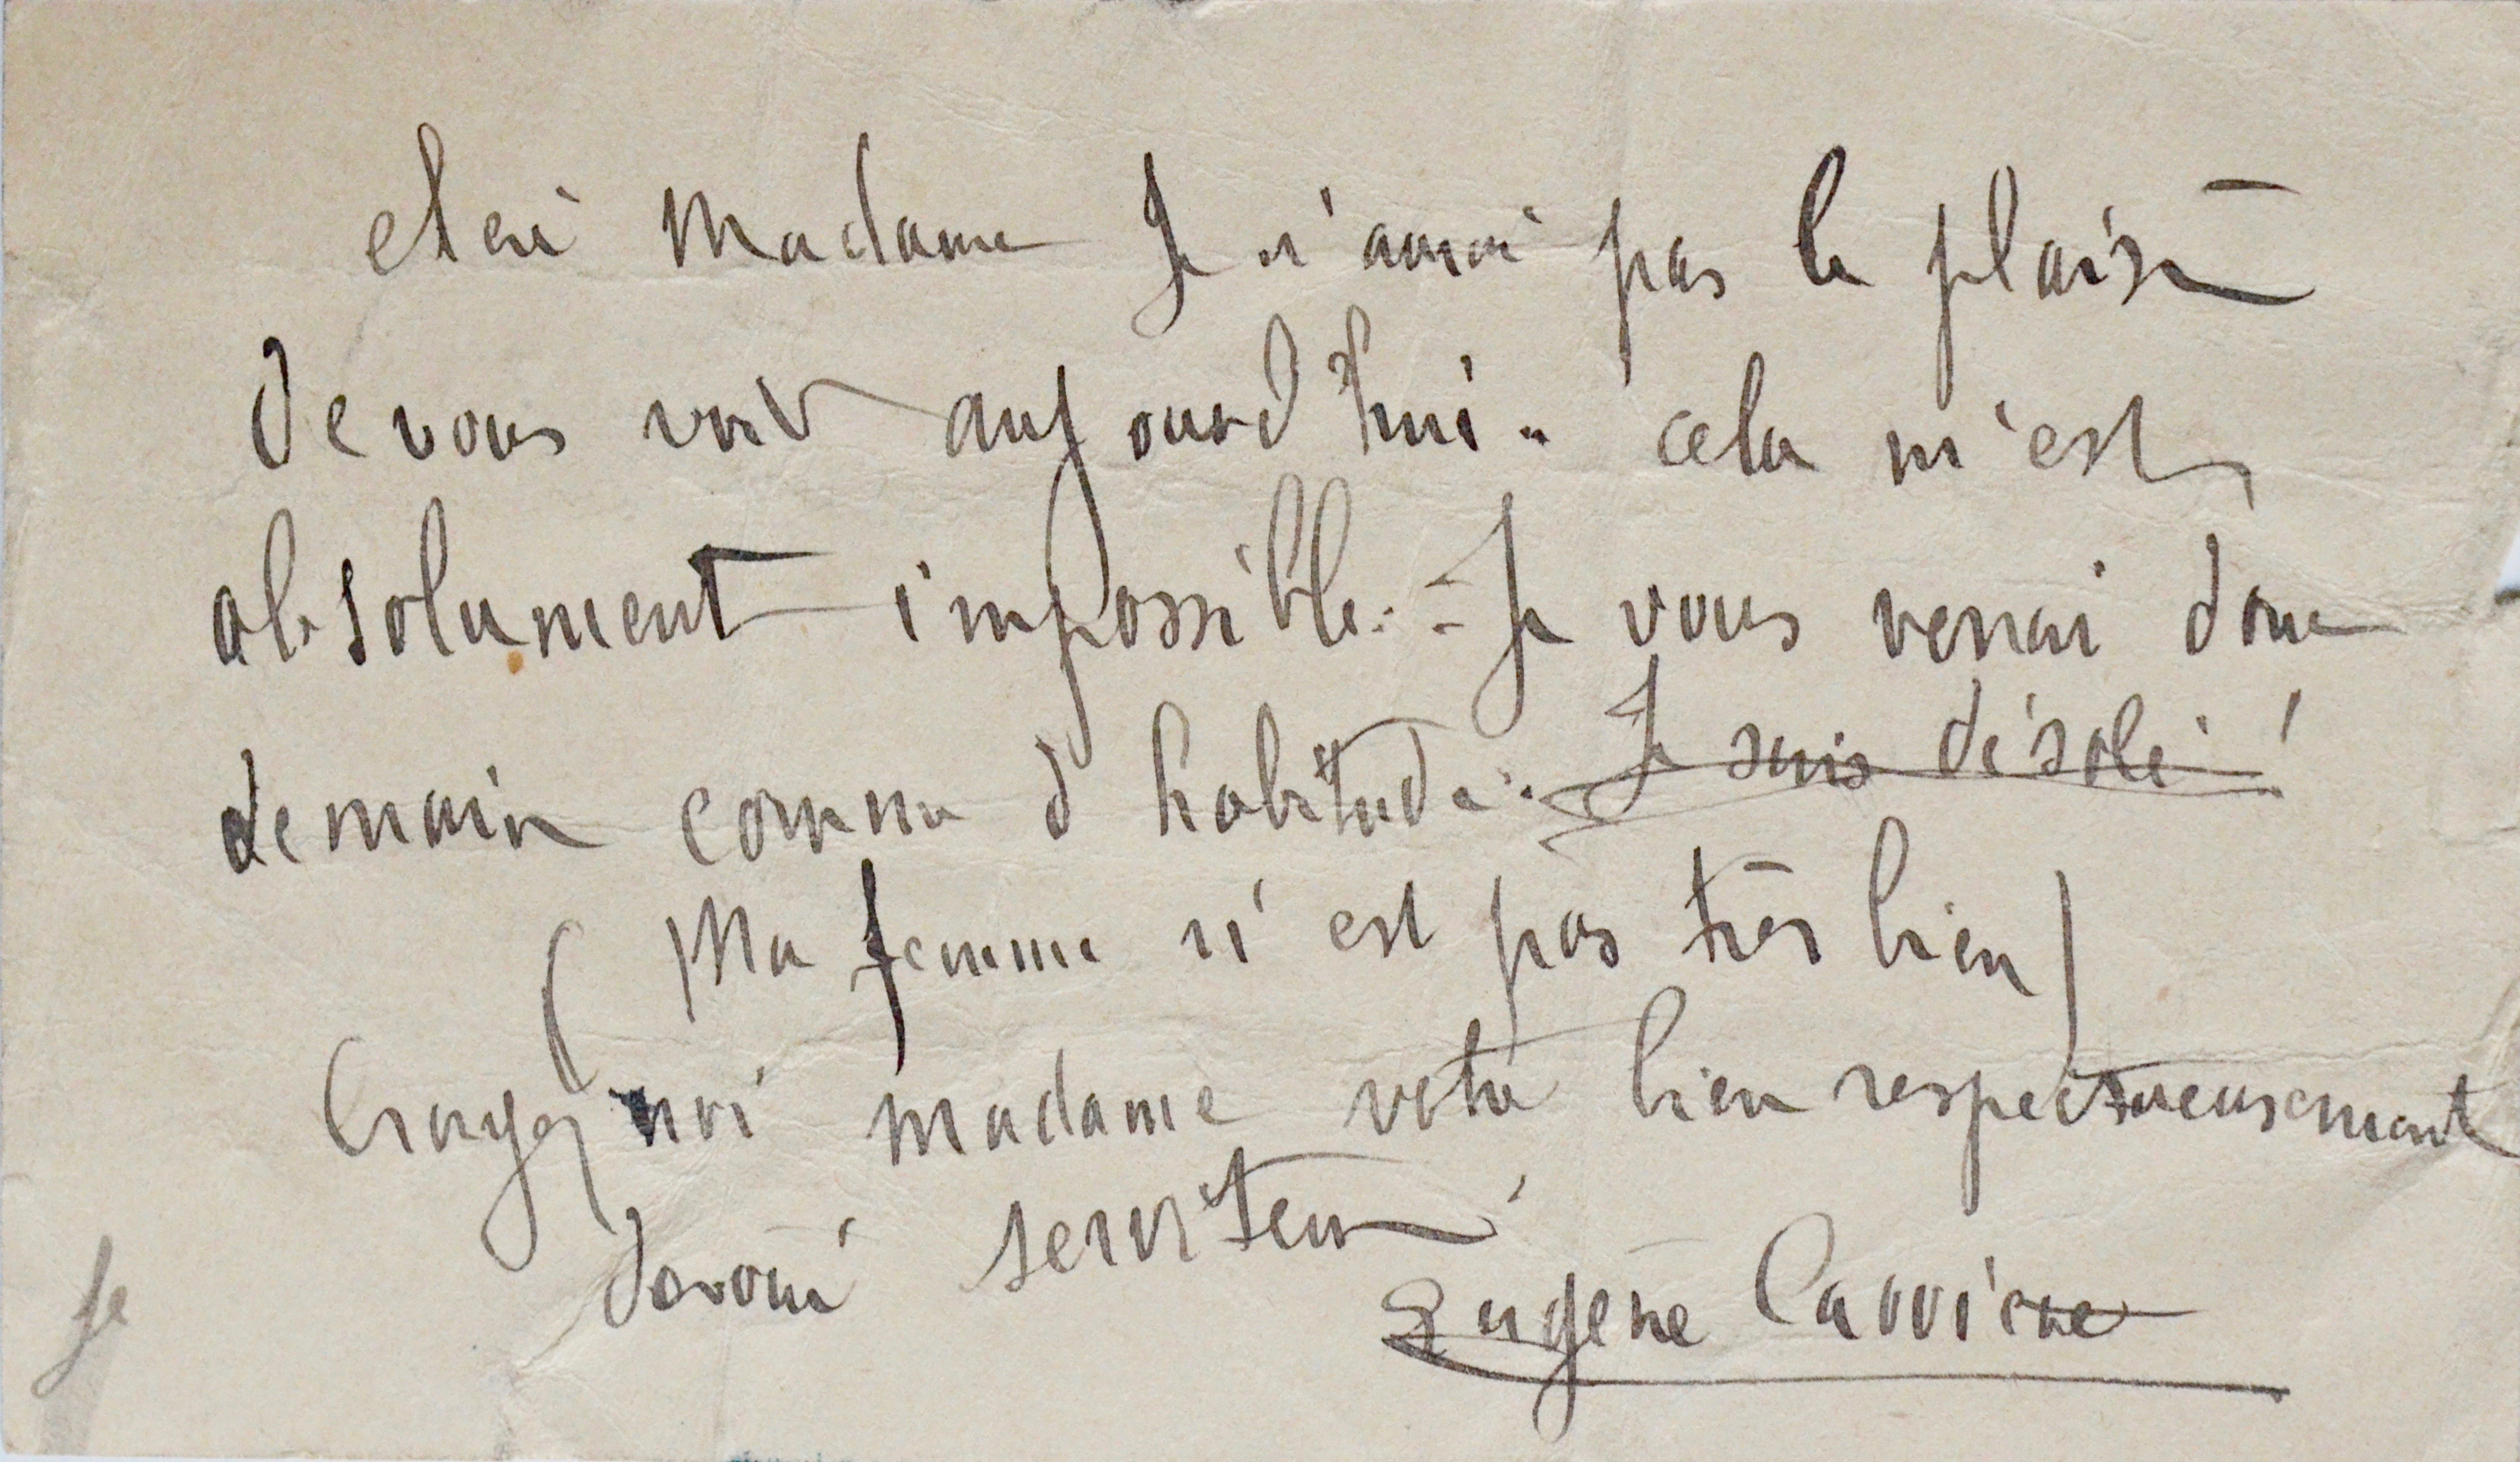 Chère Madame Je n'aurai pas le plaisir
de vous voir aujourd'hui. cela m'est
absolument impossible. - Je vous verrai donc
demain comme d'habitude. Je suis désolé !
(Ma femme n'est pas très bien)
Croyez moi madame votre bien respectueusement
dévoué serviteur
Eugène Carrière
Je